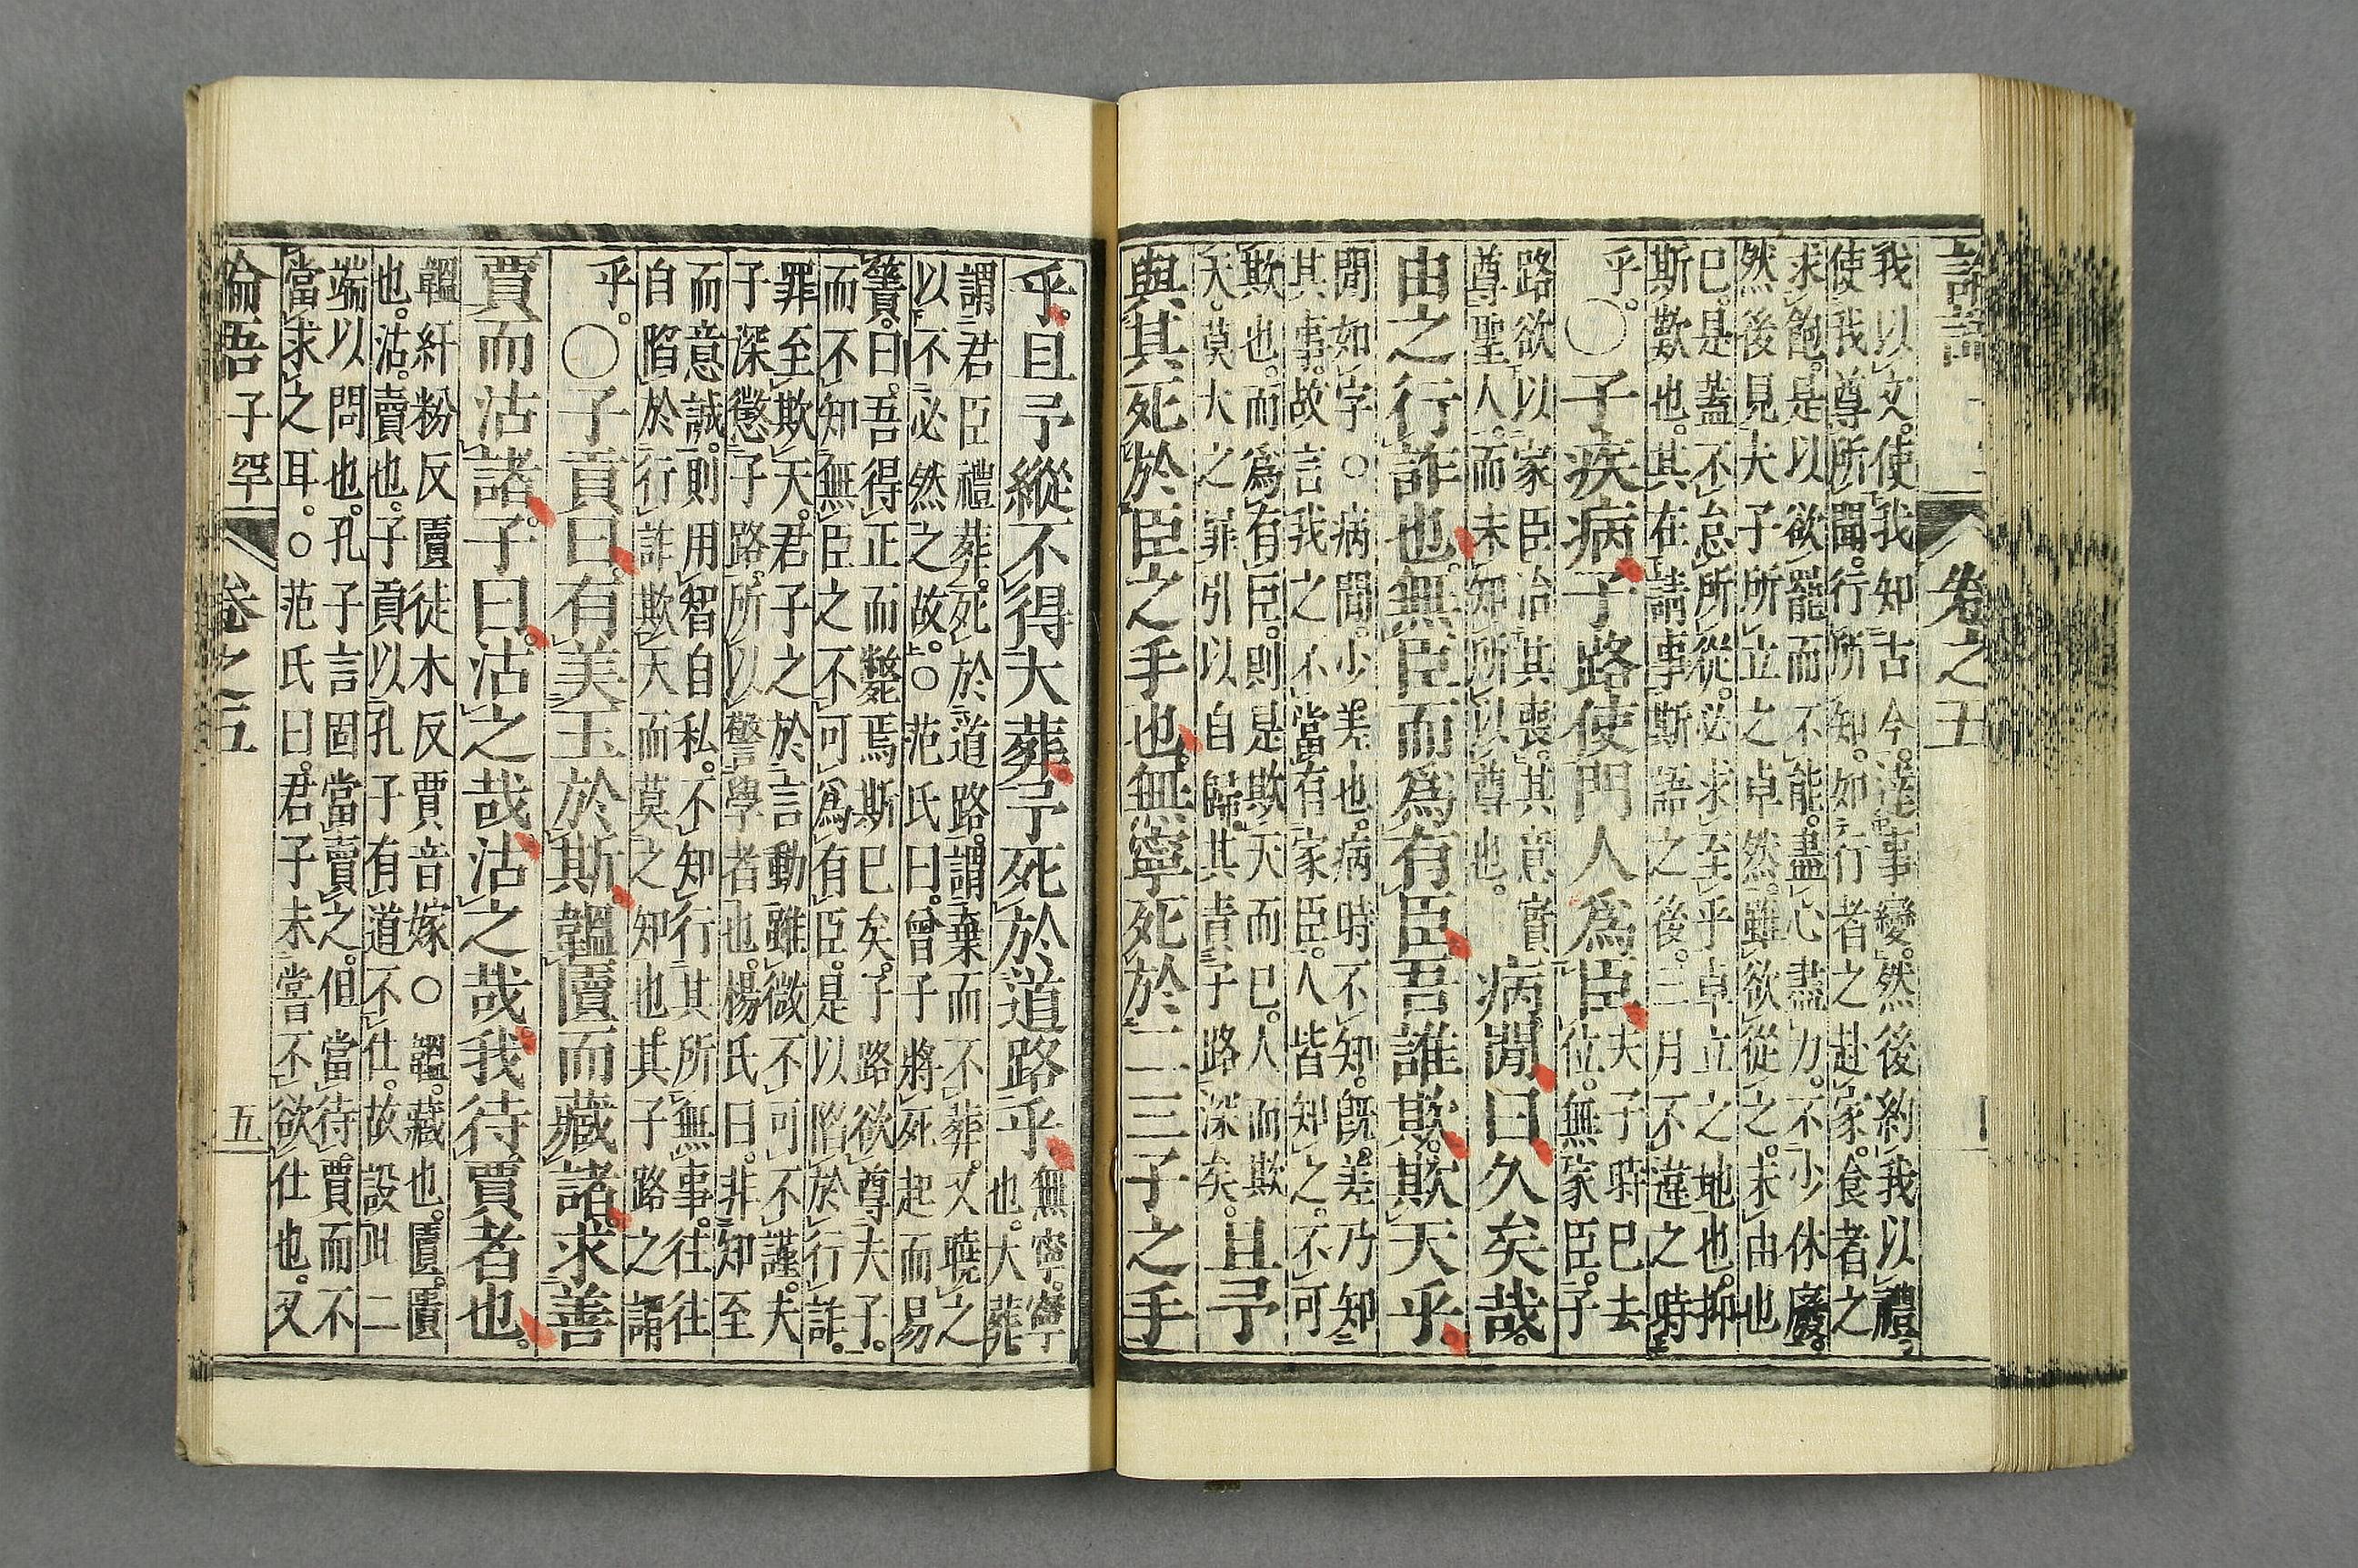 論語 卷之五
我以文。使我知古今。達事變。然後約我以禮。
使我尊所聞。行所知。如行者之赴家。食者之
求飽。是以欲罷而不能。盡心盡力。不少休廢。
然後見夫子所立之卓然。雖欲從之。末由也
已。是蓋不怠所從。必求至乎卓立之地也。抑
斯歎也。其在請事斯語之後。三月不違之時
乎。
○子疾病。子路使門人爲臣。
夫子時已去
位。無家臣。子
路欲以家臣治其喪。其意實
尊聖人。而未知所以尊也。
病閒。曰。久矣哉。
由之行詐也。無臣而爲有臣。吾誰欺。欺天乎。
閒如字。○病閒。少差也。病時不知。既差乃知
其事。故言我之不當有家臣。人皆知之。不可
欺也。而爲有臣。則是欺天而已。人而欺
天。莫大之罪。引以自歸。其責子路深矣。
且予
與其死於臣之手也。無寧死於二三子之手
乎。且予縱不得大葬。予死於道路乎。
無寧。寧
也。大葬
謂君臣禮葬。死於道路。謂棄而不葬。又曉之
以不必然之故。○范氏曰。曾子將死。起而易
簀。曰。吾得正而斃焉斯已矣。子路欲尊夫子。
而不知無臣之不可爲有臣。是以陷於行詐。
罪至欺天。君子之於言動。雖微不可不謹。夫
子深懲子路。所以警學者也。楊氏曰。非知至
而意誠。則用智自私。不知行其所無事。往往
自陷於行詐欺天而莫之知也。其子路之謂
乎。
○子貢曰。有美玉於斯。韞匵而藏諸。求善
賈而沽諸。子曰。沽之哉沽之哉。我待賈者也。
韞紆粉反匵徒木反賈音嫁○韞。藏也。匵。匱
也。沽。賣也。子貢以孔子有道不仕。故設此二
端以問也。孔子言固當賣之。但當待賈而不
當求之耳。○范氏曰。君子未嘗不欲仕也。又
論語子罕 卷之五 五